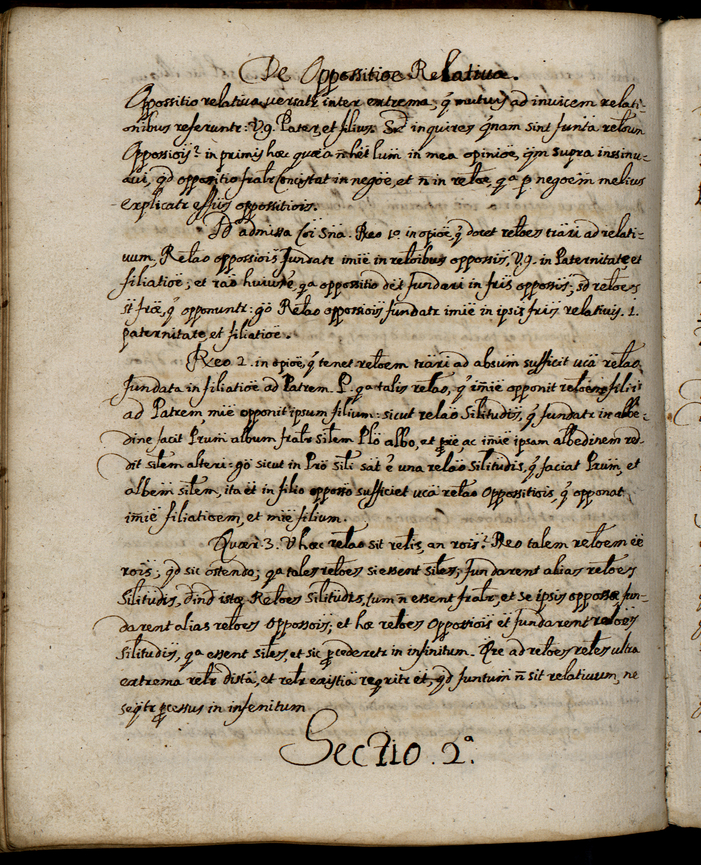 De Oppossitioe Relativa.
Oppossitio relativa versatr inter extrema, q̃ mutuis ad invicem relati-
onibus referuntr: V.g. Pater, et filius. Sed inquires q̃nam sint funta reloum
Oppossiois? in primis hæc quæa ñ het lum in mea opinioe, q̃m supra inssinu-
avi, q̃d oppositio fralr Concistat in negoe, et ñ in reloe, qª p negoem melius
explicatr effus oppossitiois.
admissa Coi Sna. Reo 1º in opioe, q̃ docet reloes trãri ad relati-
vum, Relao oppossiois fundatr imie in reloibus oppossis, V.g. in Paternitate, et
filiatioe; et rao huius ẽ, qª oppossitio det fundari in fris oppossis; sd reloes
st froe, q̃ opponuntr: go Relao oppossiois fundatr imie in ipsis fris relativis. 1.
paternitate, et filiatioe.
Reo 2. in opioe, q̃ tenet reloem trãri ad absum sufficit uca relao
fundata in filiatioe ad Patrem. P. qª talis relao, q̃ imie opponit reloem filii
ad Patrem, mie opponit ipsum filium: sicut relao Silitudis, q̃ fundatr in albe-
dine facit Prum album fralr silem Plo albo, et pre, ac imie ipsam albedinem red-
dit silem alteri: go sicut in Pro sili sat ẽ una relao silitudis, q̃ faciat Prum, et
albem silem, ita et in filio opposso sufficiet uca relao oppossitiois, q̃ opponat
imie filiatioem, et mie filium.
Quær 3. V hæc relao sit relis, an rois? Reo talem reloem ee
rois; q̃d sic ostendo; qª tales reloes si essent siles, fundarent alias reloes
Silitudis, dind istæ Reloes Silitudis, cum ñ essent fralr, et se ipsis oppossæ fun-
darent alias reloes oppossois, et hæ reloes oppossiois et fundarent reloes
silitudis, qª essent siles, et sic p̃cederetr in infinitum. Qre ad reloes reles ultra
extrema relr dista, et relr existia reqritr et, q̃d funtum ñ sit relativum, ne
seq̃tr p̃cessus in infenitum
Sectio. 2.ª